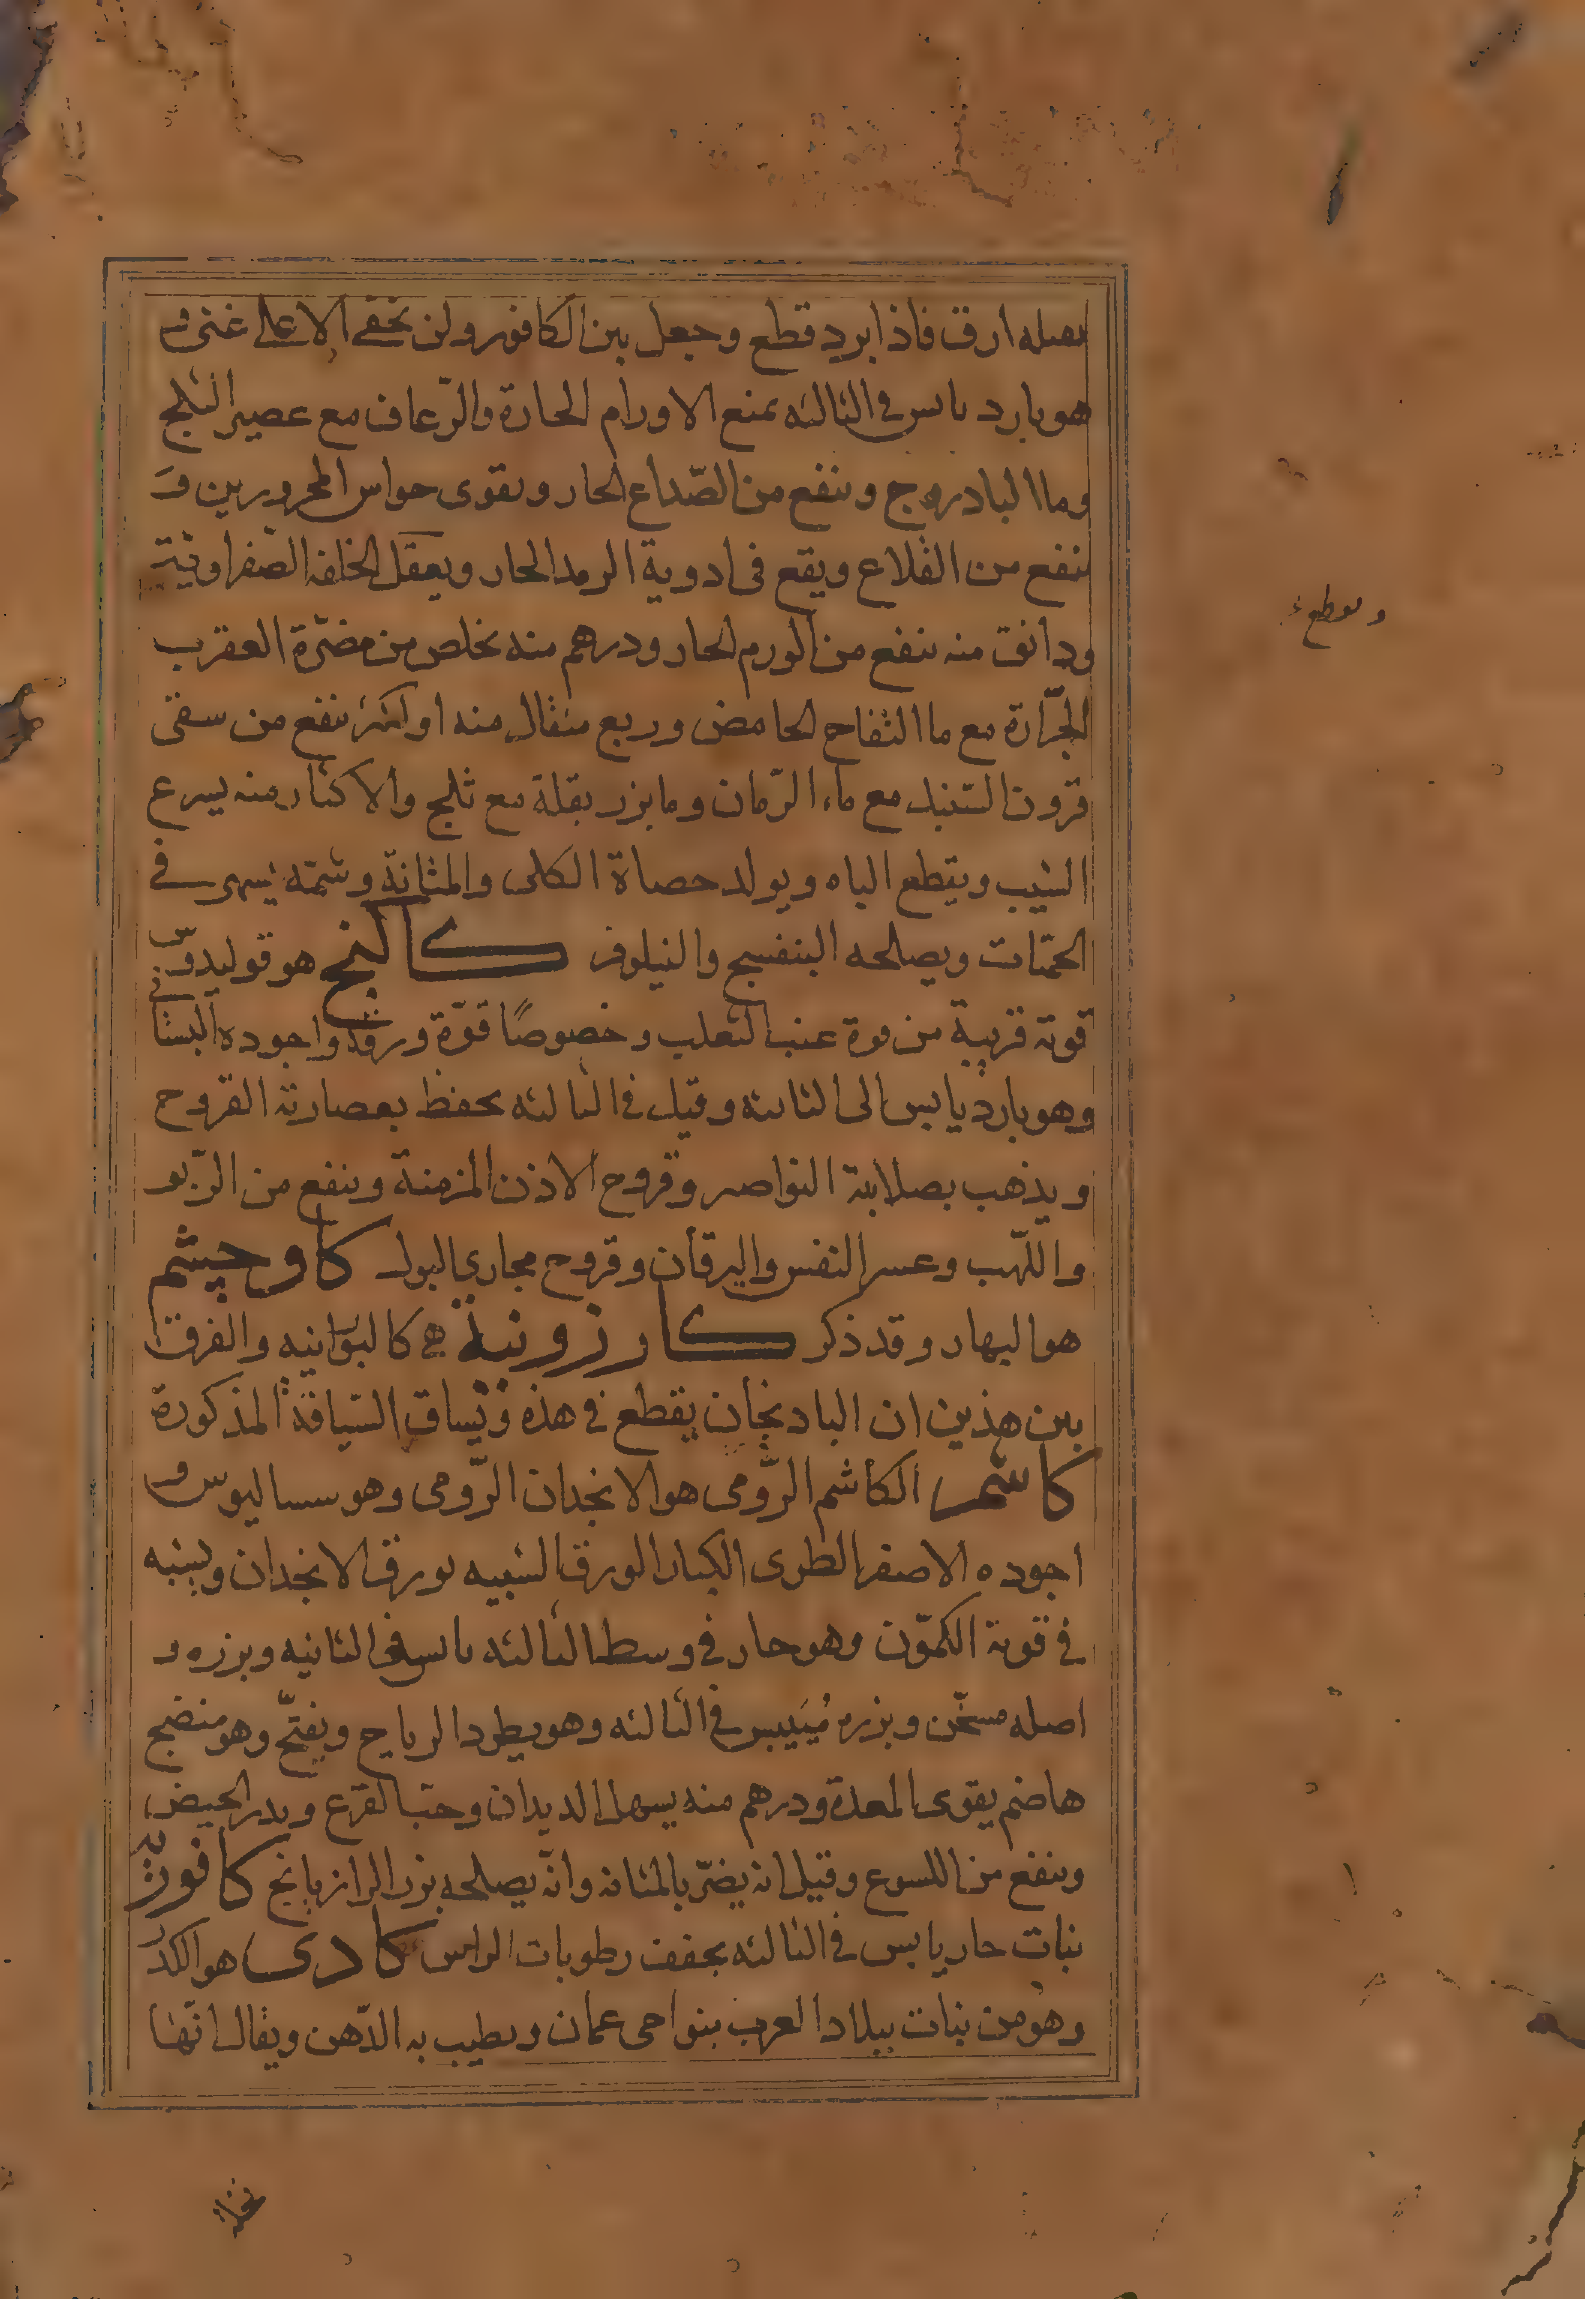 بصله ارق فاذا برد قطع وجعل بين الكافور ولن تخفى الا على غنى و
هو بارد يابس فى الثالثه يمنع الاورام الحارة والرّعاف مع عصير الثلج
وما البادروج وينفع من الصّداع الحار ويقوى حواس المحرورين و
ينفع من القلاع ويقع فى ادوية الرمد الحار ويعقل الخلفه الصّفراويّة
ودانق منه ينفع من الورم الحار ودرهم منه يخلص من مضرّة العقرب
الجرّارة مع ما التفاح الحامض وربع مثقال منه او اكثر ينفع من سقى
قرون السّنبل مع ماء الرّمان وما بزر بقلة مع ثلج والاكثار منه يسرع
الشيب ويقطع الباه ويولد حصاة الكلى والمثانة وشمّه يسهر فى
الحمّيات ويصلحه البنفسج والنيلوفر كالنج هو قوليدوس
قوته قريبة من قوة عنب الثعلب وخصوصًا قوّة ورقه واجوده البستانى
وهو بارد يابس الى الثانيه وقيل فى الثالثه يحفظ بعصارته القروح
ويذهب بصلابة النواصر وقروح الاذن المزمنة وينفع من الرّبو
واللّهب وعسر النفس واليرقان وقروح مجارى البول كاوجيشم
هو البهار وقد ذكر كارزونية هى كالبوّانيه والفرق
بين هذين ان البادنجان يقطع فى هذه ويُساق السّياقة المذكورة
كاشم الكاشم الرّومى هو الانجدان الرّومى وهو سساليوس و
اجوده الاصفر الطرى الكبار الورق الشبيه بورق الانجدان ويشبه
فى قوته الكمّون وهو حار فى وسط الثالثه يابس فى الثانيه وبزره و
اصله مسخّن وبزره مُيَيبس فى الثالثه وهو يطرد الرياح ويفتّح وهو منضج
هاضم يقوى المعدة ودرهم منه يسهل الديدان وحبّ القرع ويدر الحيض
وينفع من اللسوع وقيل انه يضرّ بالمثانه وانّه يصلحه بزر الرازيانج كافوريّة
نبات حار يابس فى الثالثه يجفف رطوبات الراس كادى هو الكدر
وهو من نبات ببلاد العرب بنواحى عمان ويطيب به الدّهن ويقال انّها
ويقطع